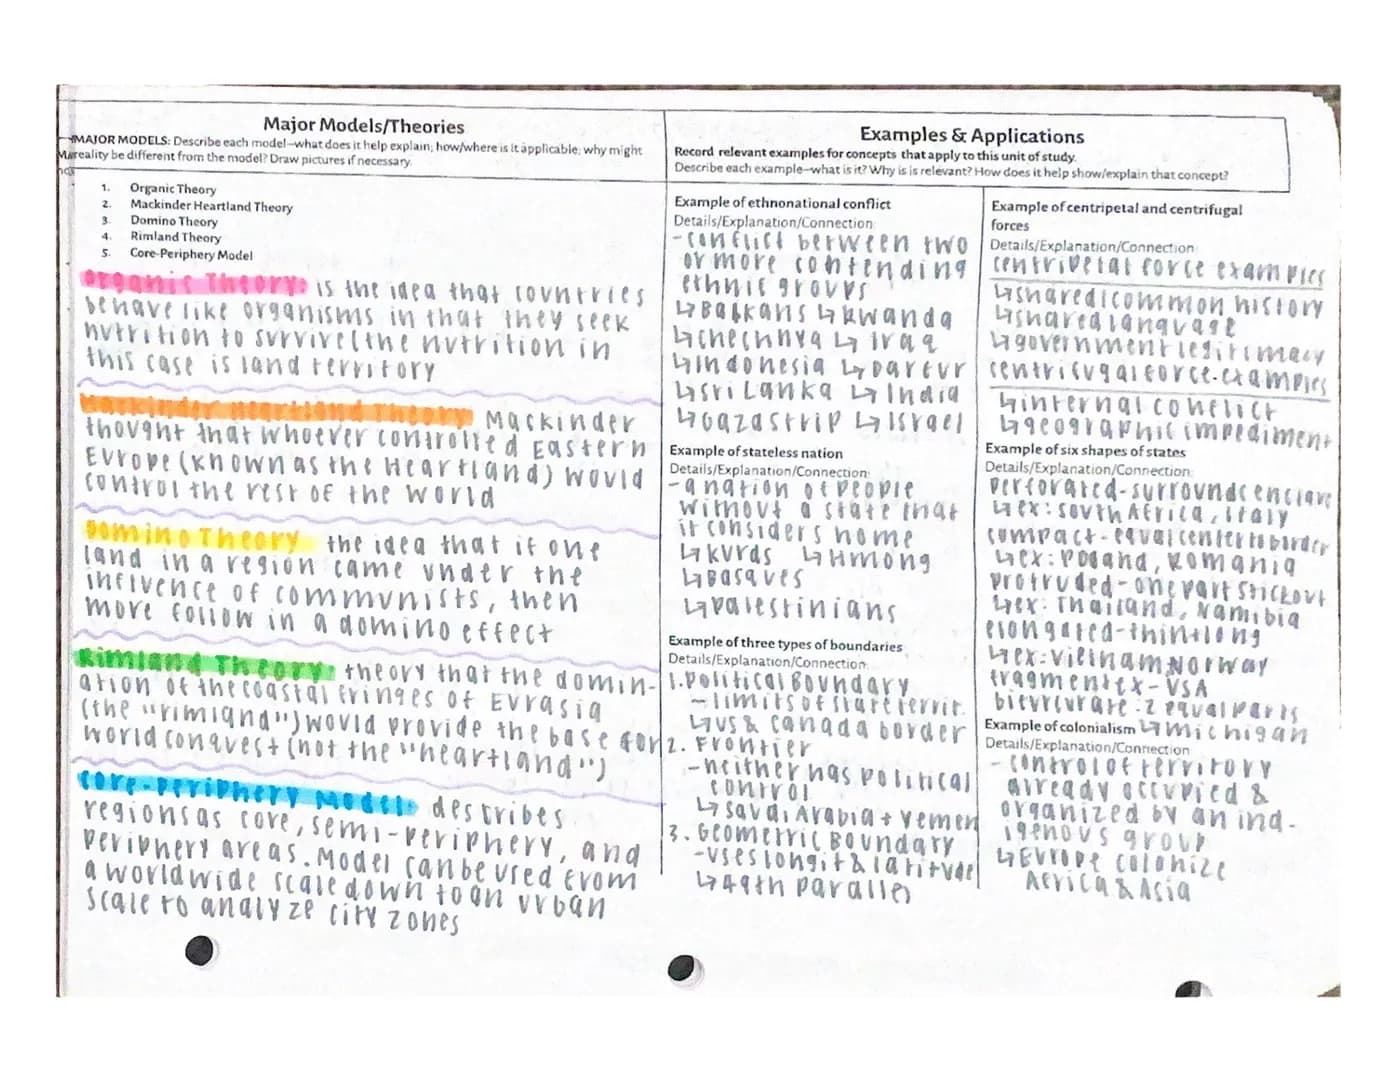 Major Models/Theories
MAJOR MODELS: Describe each model—what does it help explain; how/where is it applicable; why might
reality be different from the model? Draw pictures if necessary.
1. Organic Theory
2. Mackinder Heartland Theory
3. Domino Theory
4. Rimland Theory
5. Core-Periphery Model
Organic Theory: is the idea that countries
behave like organisms in that they seek
nutrition to survive (the nutrition in
this case is land territory
Mackinder Heartland Theory Mackinder
thought that whoever controlled Eastern
Europe (known as the Heartland) would
control the rest of the world
Domino Theory the idea that if one
land in a region came under the
influence of communists, then
more follow in a domino effect
Rimland Theory: theory that the domin-
ation of the coastal fringes of Eurasia
(the "rimland") would provide the base for
world conquest (not the "heartland")
Core-Periphery Model: describes
regions as core, semi-periphery, and
periphery areas. Model can be used from
a worldwide scale down to an urban
scale to analyze city zones
Examples & Applications
Record relevant examples for concepts that apply to this unit of study.
Describe each example—what is it? Why is is relevant? How does it help show/explain that concept?
Example of ethnonational conflict
Details/Explanation/Connection:
-conflict between two
or more contending
ethnic groups
↳Balkans ↳Rwanda
↳Chechnya ↳Iraq
↳Indonesia ↳Darfur
↳Sri Lanka ↳India
↳Gaza strip ↳Israel
Example of stateless nation
Details/Explanation/Connection:
-a nation of people
without a state that
it considers home
↳Kurds ↳Hmong
↳Basques
↳Palestinians
Example of three types of boundaries
Details/Explanation/Connection:
1. Political Boundary
-limits of state territ.
↳US & Canada border
2. Frontier
-neither has political
control
↳Saudi Arabia + Yemen
3. Geometric Boundary
-uses longit & latitude
↳49th parallel
Example of centripetal and centrifugal
forces
Details/Explanation/Connection:
centripetal force examples
↳shared/common history
↳shared language
↳government legitimacy
centrifugal force examples
↳internal conflict
↳geographic impediment
Example of six shapes of states
Details/Explanation/Connection:
perforated-surrounds enclave
↳ex: South Africa, Italy
compact-equal center to border
↳ex: Poland, Romania
protruded-one part stick out
↳ex: Thailand, Namibia
elongated-thin+long
↳ex: Vietnam, Norway
fragment ex-USA
bifurcate: 2 equal parts
↳Michigan
Example of colonialism
Details/Explanation/Connection
-control of territory
already occupied &
organized by an ind-
igenous group
↳Europe colonize
Africa & Asia